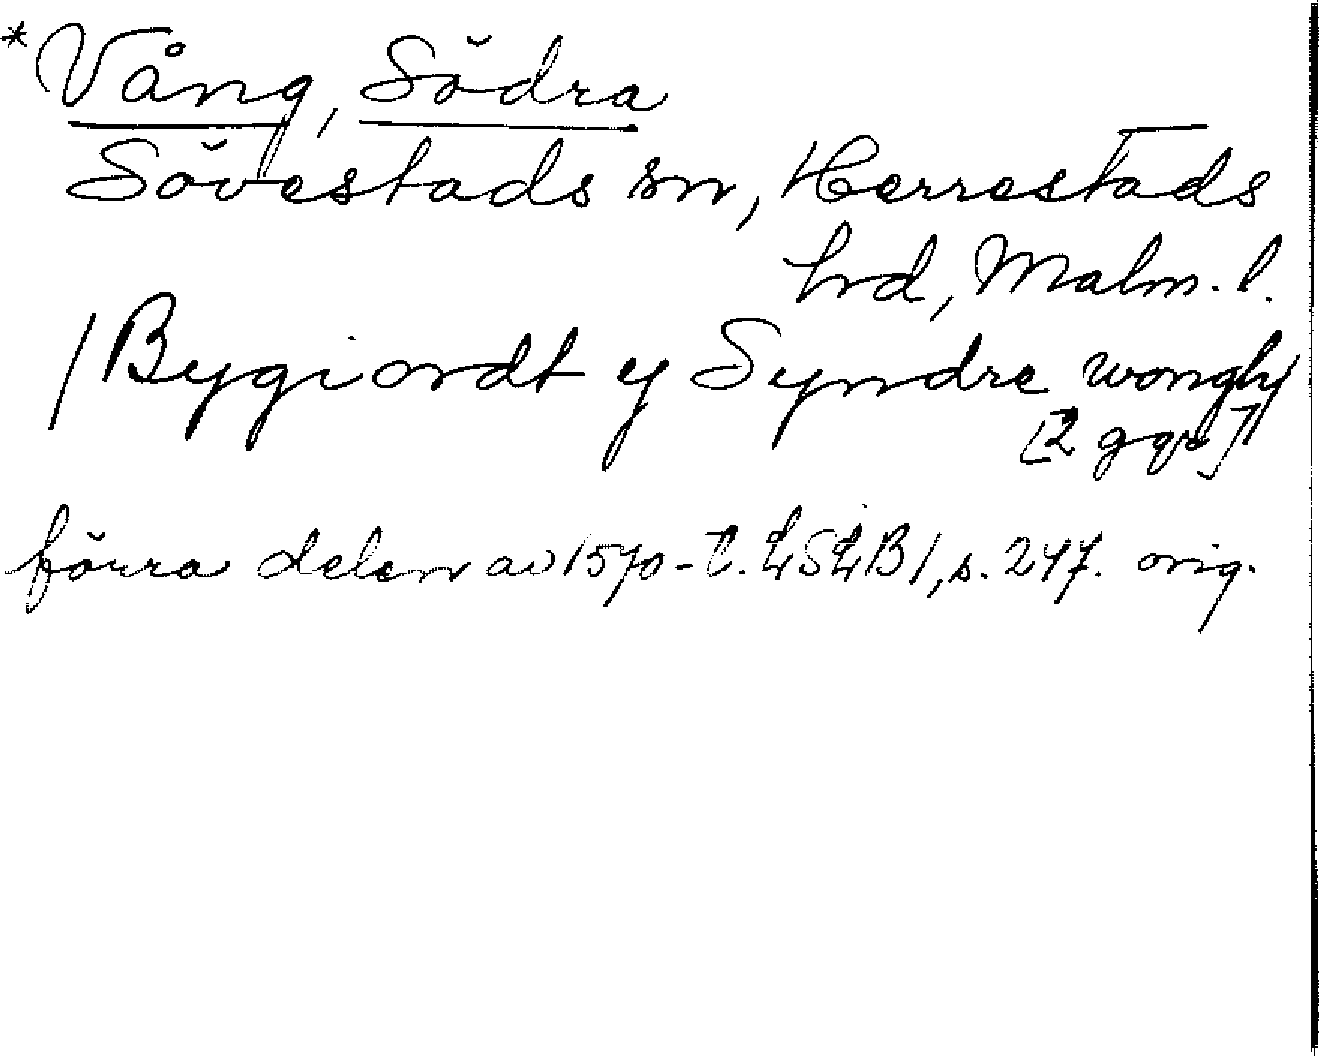 *Vång, Södra
Sövestads sn, Herrestads
hrd, Malm. l.
/Bygiordt y Syndre wongh/
[2 ggr]
förra delen av 1570-t. LSLB1, s. 247. orig.